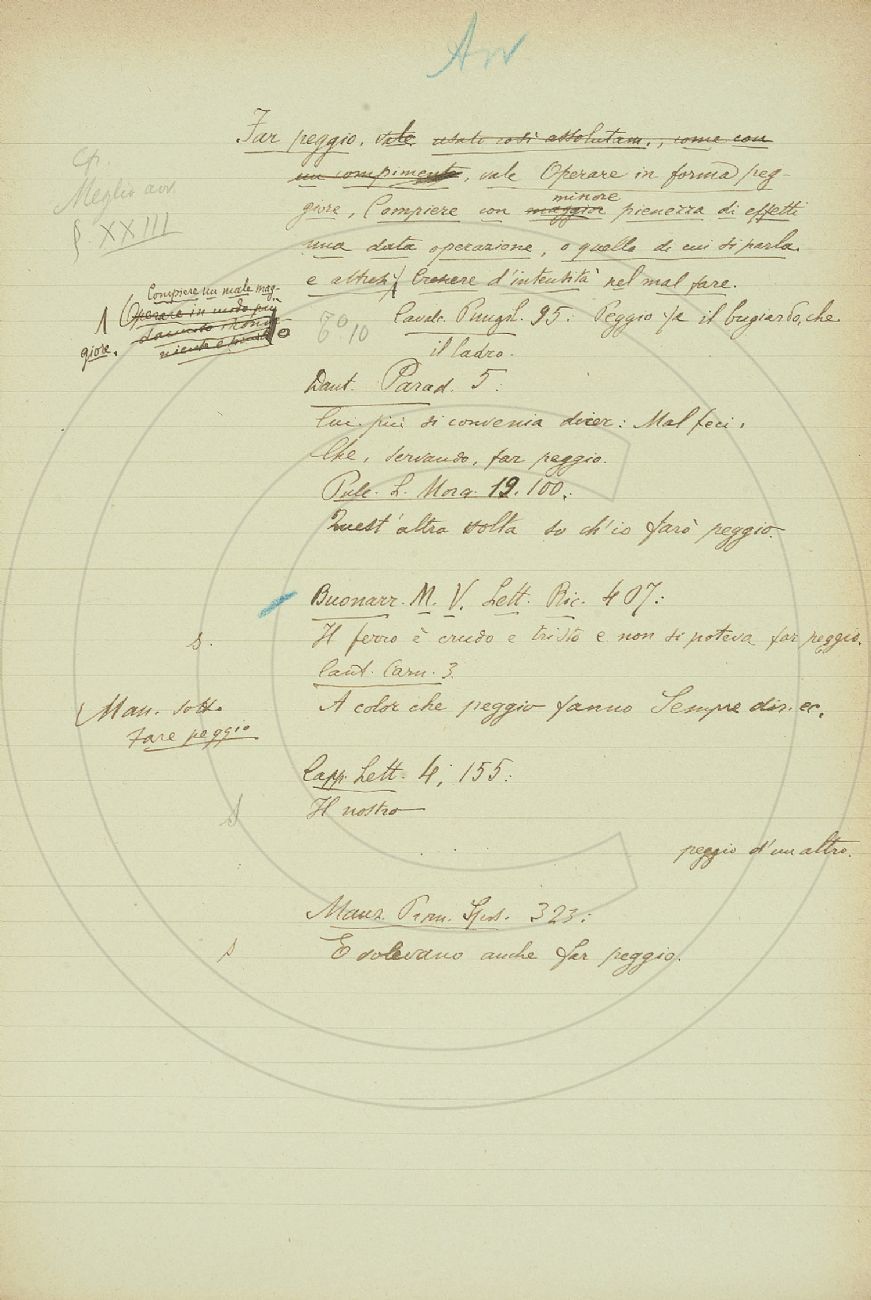 Avv
Far peggio, vale usato così assolutam., come con
un compimento, vale Operare in forma peg-
giore, Compiere con maggior minore pienezza di effetti
una data operazione, o quella di cui si parla.
e altresì Crescere d'intensità nel mal fare.
Cfr.
Meglio avv.
§ XXIII
Compiere un male mag-
giore.
Operare in modo più
Cavalc. Pungil. 95: Peggio fa il bugiardo, che
il ladro.
Dant. Parad. 5:
Cui più si convenia dicer: Mal feci,
Che, servando, far peggio.
Pulc. L. Morg. 19. 100:
Quest'altra volta so ch'io farò peggio.
Buonarr. M. V. Lett. Ric. 407:
s. Il ferro è crudo e tristo e non si poteva far peggio.
Cant. Carn. 3.
Man. sott.
Fare peggio
A color che peggio fanno Sempre dir. ec.
Capp. Lett. 4, 155:
S Il nostro
peggio d'un altro.
Manz. Prom. Spos. 323:
s E solevano anche far peggio.